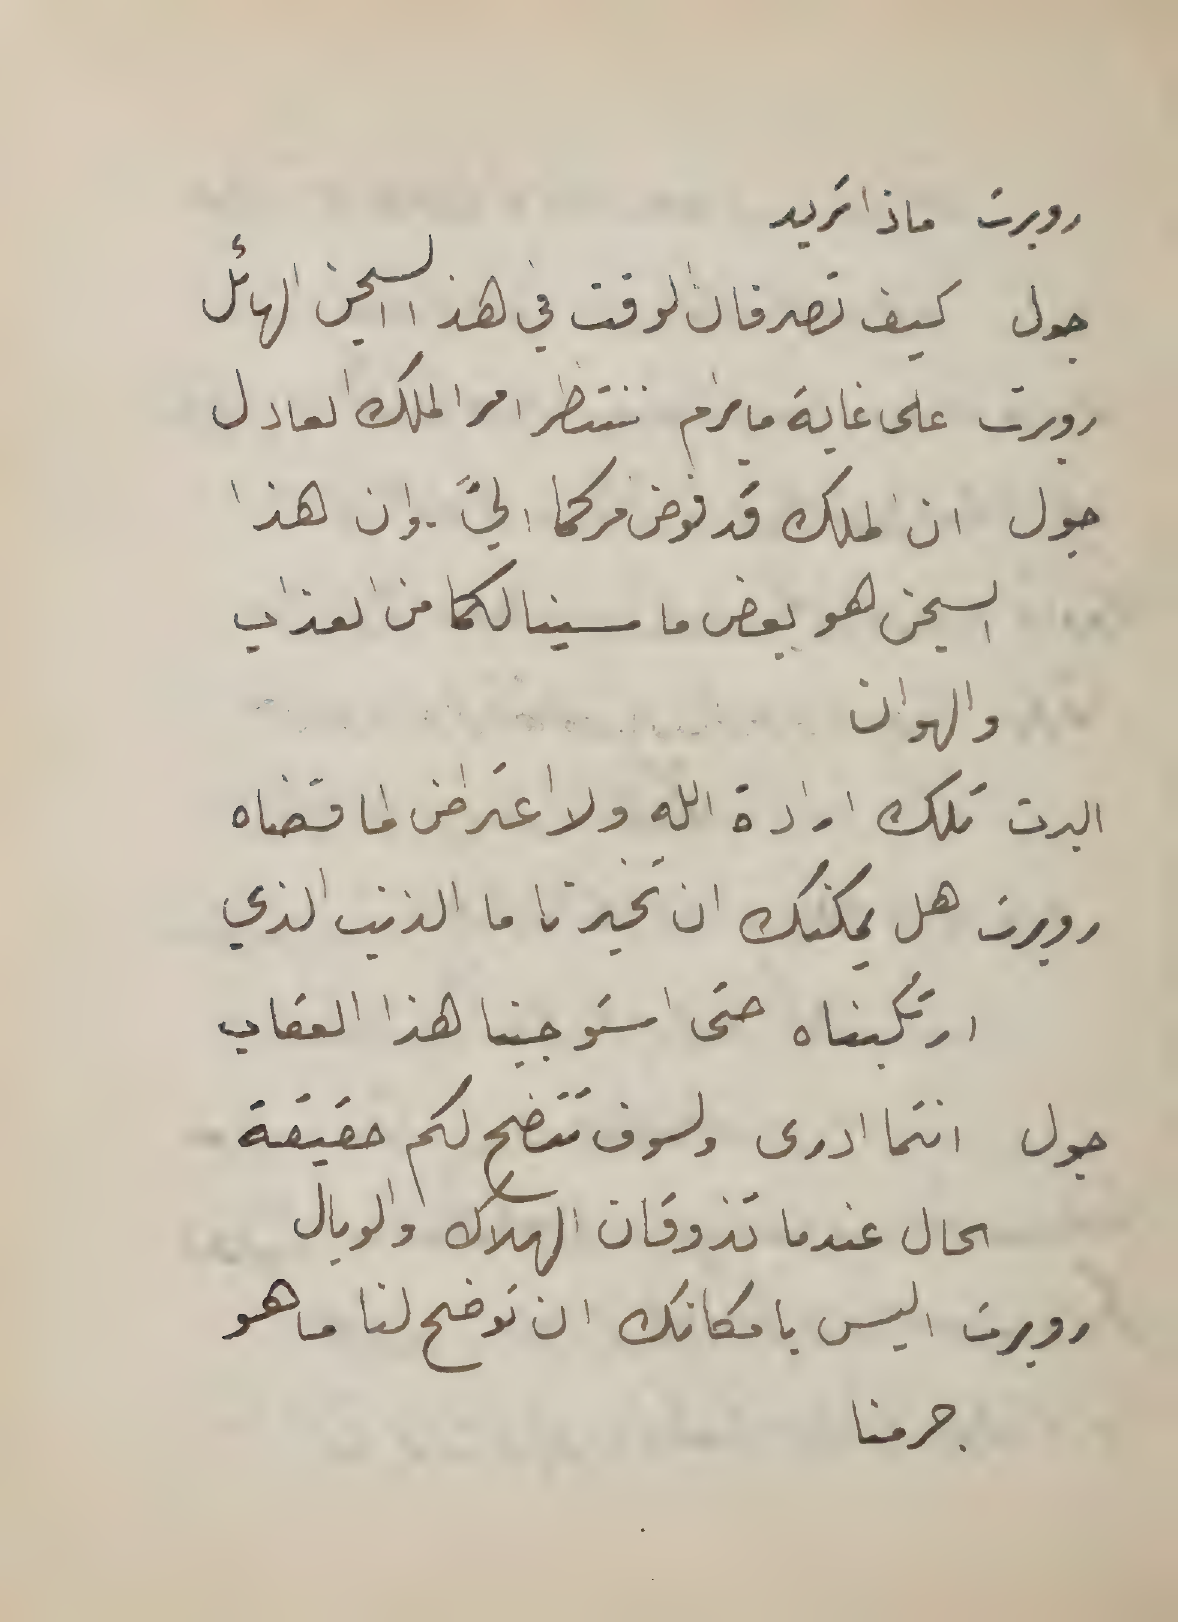 روبرت ماذا تريد
جول كيف تصرفان الوقت في هذا السجن الهائل
روبرت على غاية ما يرام ننتظر امر الملك العادل
جول ان الملك قد فوض امركما اليّ. وان هذا
السجن هو بعض ما سينالكما من العذاب
والهوان
البرت تلك ارادة الله ولا اعتراض لما قضاه
روبرت هل يمكنك ان تخبرنا ما الذنب الذي
ارتكبناه حتى استوجبنا هذا العقاب
جول انتما ادرى ولسوف تتضح لكم حقيقة
الحال عندما تذوقان الهلاك والوبال
روبرت اليس بامكانك ان توضح لنا ما هو
جرمنا